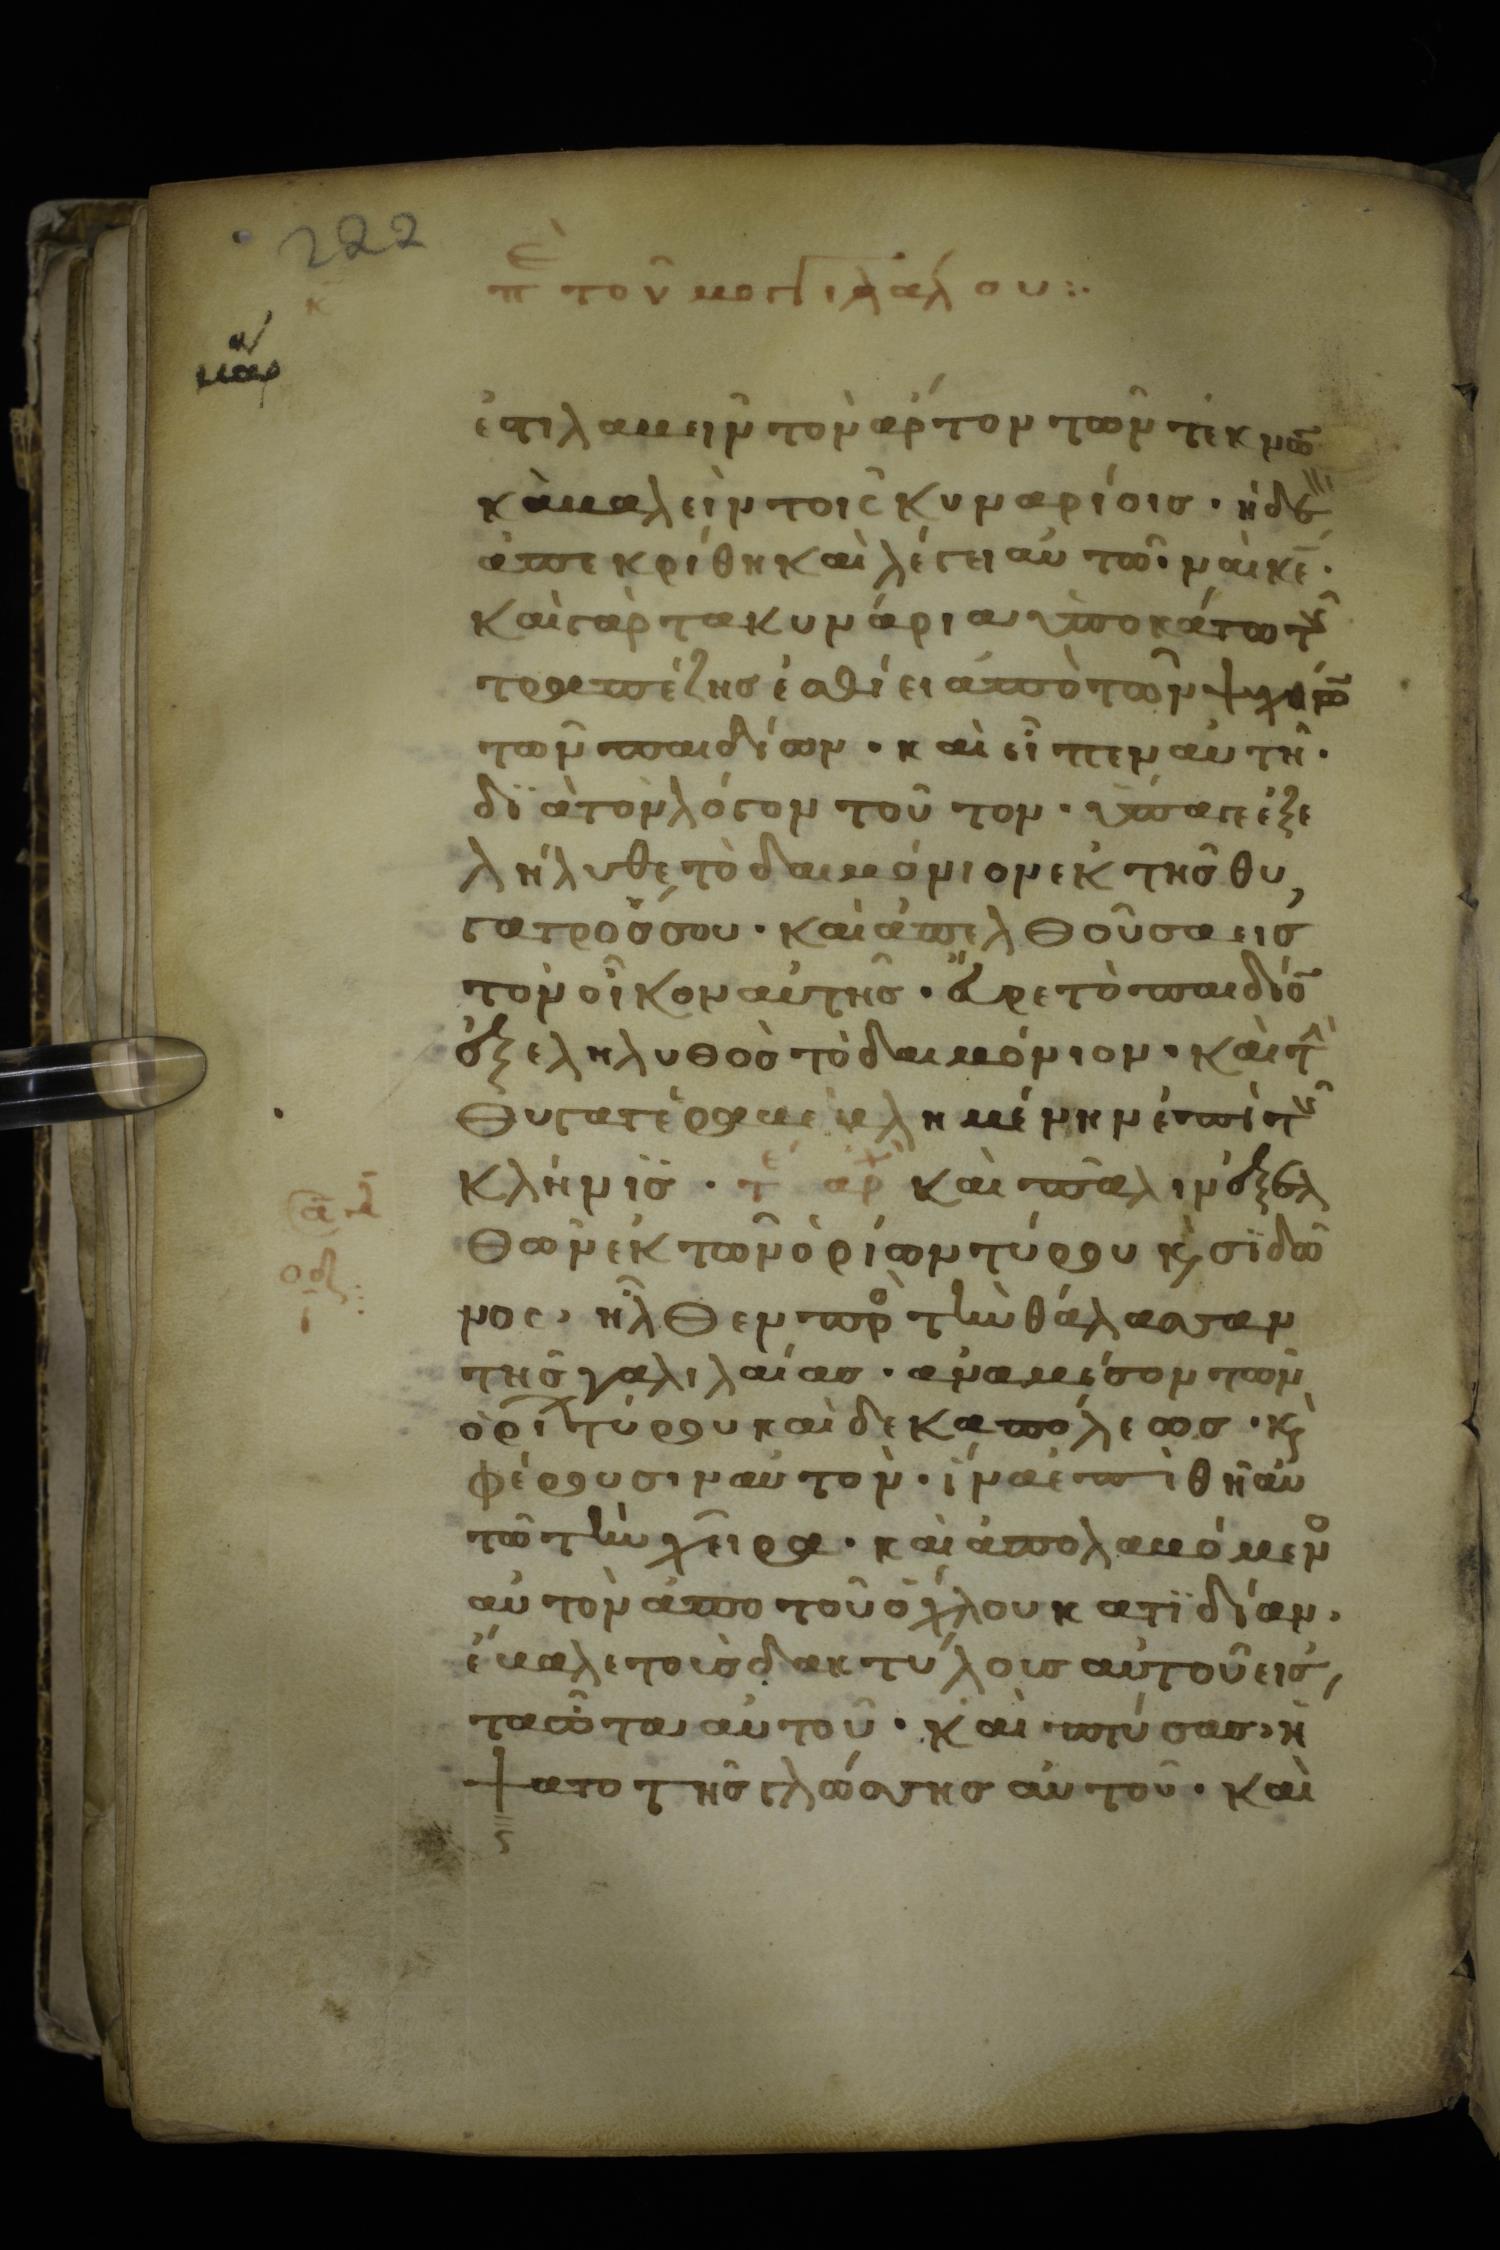 222
περὶ τοῦ μογγιλάλου:
ἐστι λαβεῖν τὸν ἄρτον τῶν τέκνω̅
κ βαλεῖν τοῖς κυναρίοις · ἡ δὲ
ἀπεκρίθη καὶ λέγει αὐτῶ · ναὶ κ̅ε̅ ·
καὶ γὰρ τὰ κυνάρια ὑποκάτω τῆς
τραπέζης ἐσθίει ἀπὸ τῶν ψιχίω̅
τῶν παιδίων · καὶ εἶπεν αὐτῆ ·
διὰ τὸν λόγον τοῦτον · ὕπαγε ἐξε
λήλυθε τὸ δαιμόνιον ἐκ τῆς θυ
γατρός σου · καὶ ἀπελθοῦσα εἰς
τὸν οἶκον αὐτῆς · εὗρε τὸ παιδίο̅
ἐξεληλυθὸς τὸ δαιμόνιον · καὶ τ̅
θυγατέρα βεβλημένην ἐπὶ τῆς
κλήνϊς · τε αρχ καὶ πάλιν ἐξελ
θὼν ἐκ τῶν ὁρίων τύρου κ̀ σϊδῶ
νος, ἦλθεν προ τὴν θάλασσαν
τῆς γαλιλαίας · ἀναμέσον τῶν
ὁρί τύρου καὶ δεκαπόλεως · κ̀
φέρουσιν αὐτὸν · ἵνα ἐπιθῆ αὐ
τῶ τὴν χεῖρα · καὶ ἀπολαβόμενο
αὐτὸν ἀπὸ τοῦ ὄχλου κατϊδίαν ·
ἔβαλε τοὶς δακτύλοις αὐτοῦ εἰς
τὰ ὦτα αὐτοῦ · καὶ πτύσας, ἥ
ψατο τῆς γλώσσης αὐτοῦ · καὶ